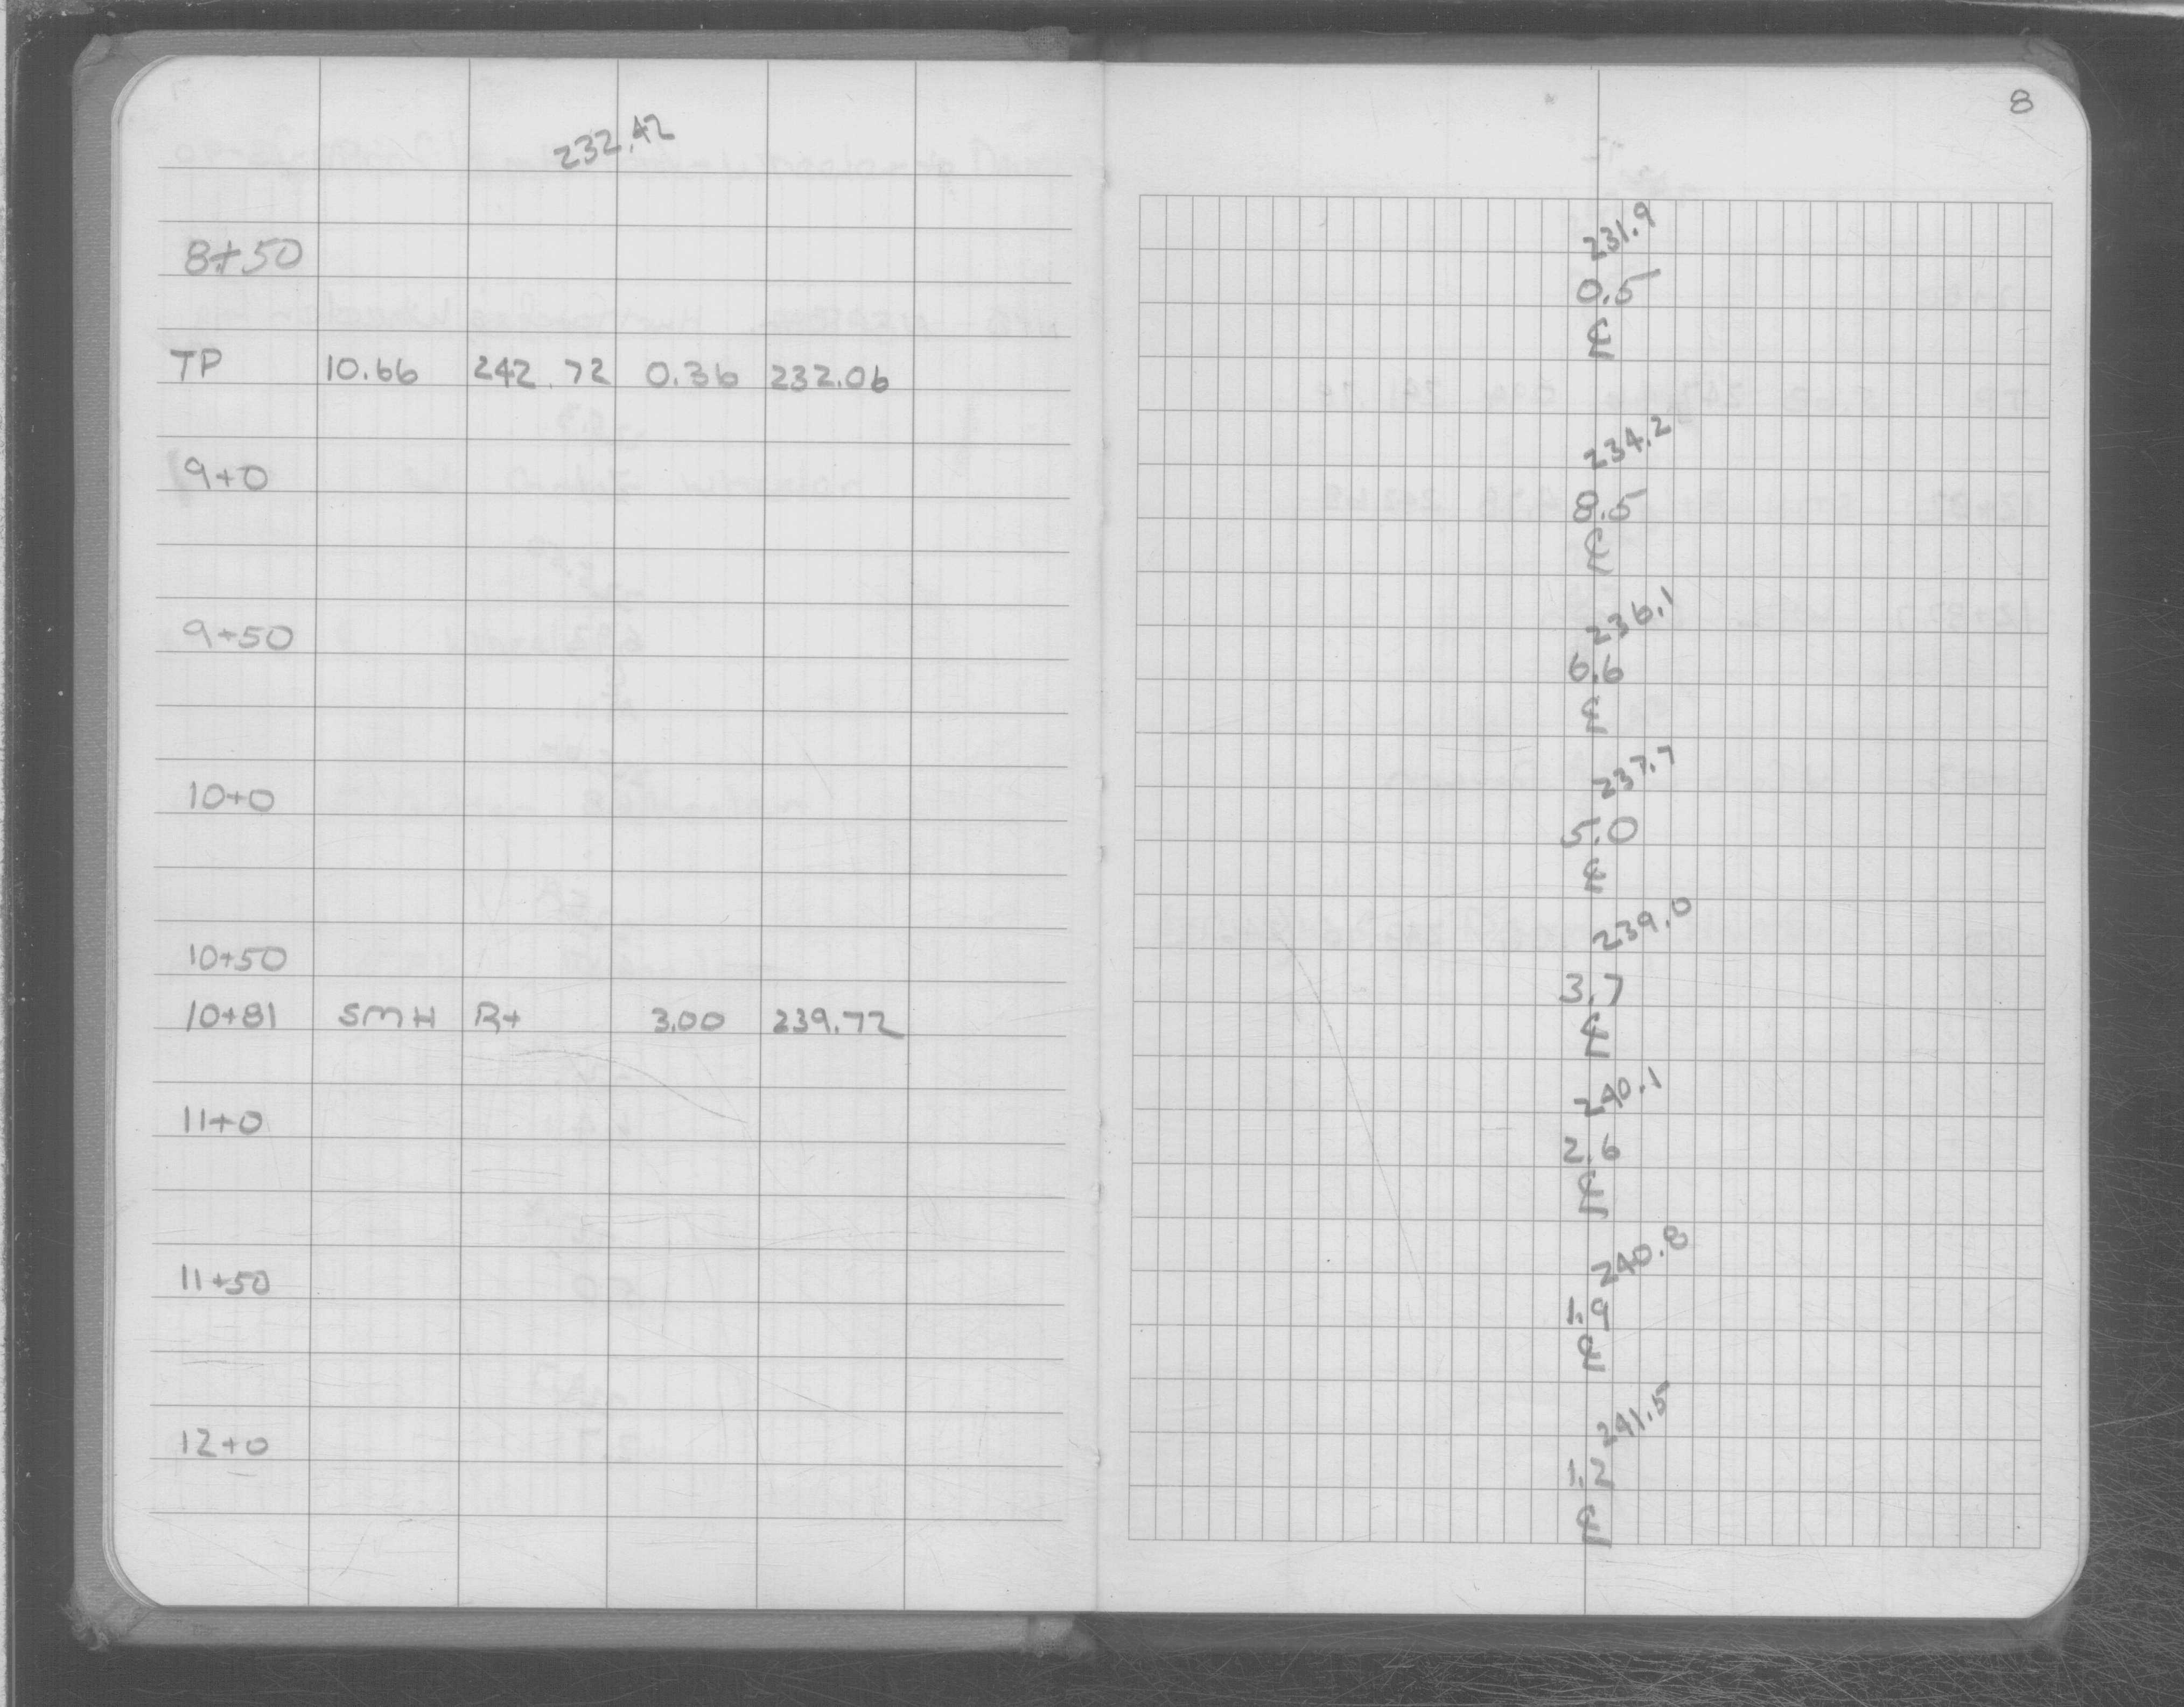 232.42
8+50
TP 10.66 242.72 0.36 232.06
9+0
9+50
10+0
10+50
10+81 SMH Rt 3.00 239.72
11+0
11+50
12+0
8
231.9
0.5
℄
234.2
8.5
℄
236.1
6.6
℄
237.7
5.0
℄
239.0
3.7
℄
240.1
2.6
℄
240.8
1.9
℄
241.5
1.2
℄